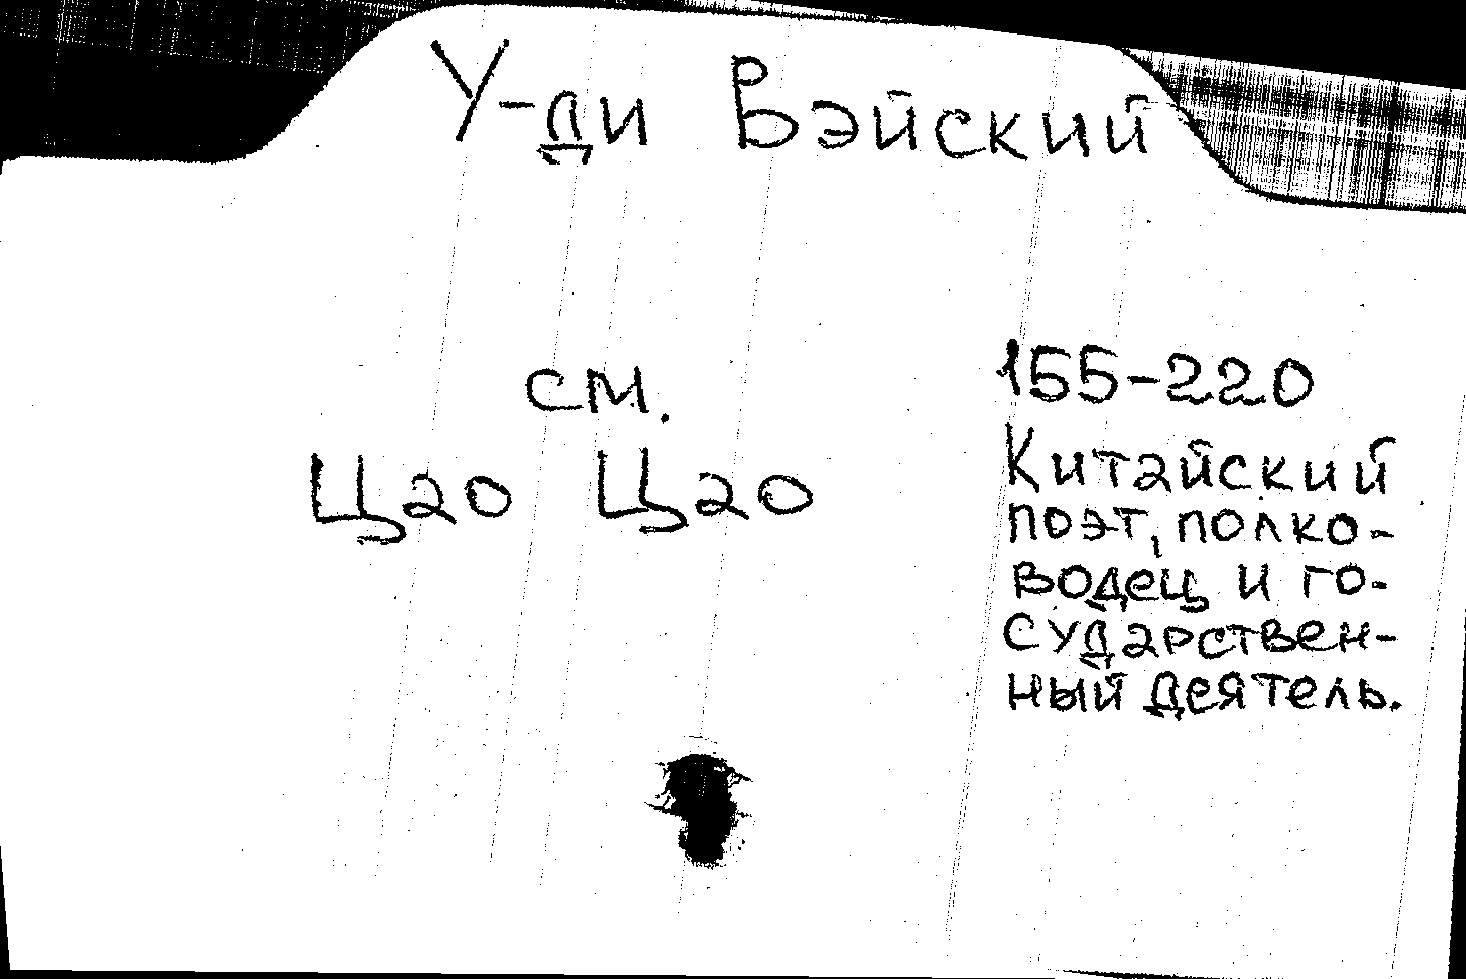 У-ди Вэйский
см.
Цао Цао
155-220
Китайский
поэт, полко-
водец и го-
сударствен-
ный деятель.